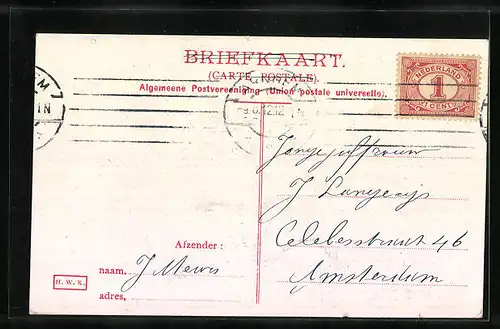 BRIEFKAART.
(CARTE POSTALE).
Algemeene Postvereeniging (Union postale universelle).
NEDERLAND
1
1 CENT
Jongejuffrouw
J Langereijs
Celebesstraat 46
Amsterdam
Afzender :
naam, J Mewis
adres,
H. W. K.